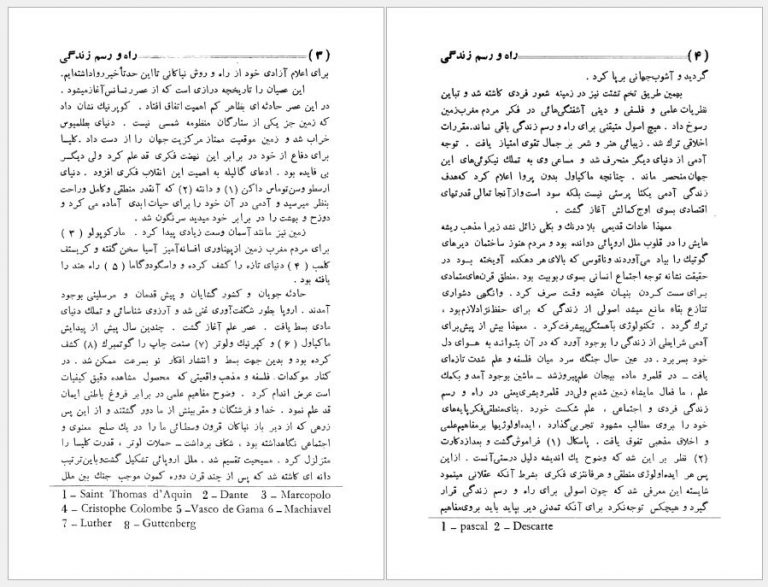 (۳) راه و رسم زندگی
برای اعلام آزادی خود از راه و روش نیاکانی تااین حدتأخیررواداشته‌ایم.
این عصیان را تاریخچه درازی است که از عصررنسانس‌آغازمیشود .
در این عصر حادثه ای بظاهر کم اهمیت اتفاق افتاد . کوپرنیك نشان داد
که زمین جز یکی از ستارگان منظومه شمسی نیست . دنیای بطلمیوس
خراب شد و زمین موقعیت ممتاز مرکزیت جهان را از دست داد. کلیسا
برای دفاع از خود در برابر این نهضت فکری قد علم کرد ولی دیگر
بی فایده بود . ادعای گالیله به اهمیت این انقلاب فکری افزود . دنیای
ارسطو وسن‌توماس داکن (۱) و دانته (۲) که آنقدر منطقی وکامل وراحت
بنظر میرسید و آدمی در آن خود را برای حیات ابدی آماده می کرد و
دوزخ و بهشت را در برابر خود میدید سرنگون شد .
زمین نیز مانند آسمان وسعت زیادی پیدا کرد . مارکوپولو (۳)
برای مردم مغرب زمین ازپهناوری افسانه‌آمیز آسیا سخن گفته و کریستف
کلمب (۴) دنیای تازه را کشف کرده و واسکودوگاما (۵) راه هند را
یافته بود .
حادثه جویان و کشور گشایان و پیش قدمان و مرسلینی بوجود
آمدند . اروپا بطور شگفت‌آوری غنی شد و آرزوی شناسائی و تملك دنیای
مادی بسط یافت . عصر علم آغاز گشت . چندین سال پیش از پیدایش
ماکیاول (۶) و کپرنیك ولوتر (۷) صنعت چاپ را گوتمبرك (۸) کشف
کرده بود و بدین جهت بسط و انتشار افکار نو بسرعت ممکن شد . در
کنار موکدات فلسفه و مذهب واقعیتی که محصول مشاهده دقیق کیفیات
است عرض اندام کرد . وضوح مفاهیم علمی در برابر فروغ باطنی ایمان
قد علم نمود . خدا و فرشتگان و مقربینش از ما دور گشتند و از این پس
زرهی که از دیر باز نیاکان قرون وسطائی ما را در یك صلح معنوی و
اجتماعی نگاهداشته بود ، شکاف برداشت ـ حملات لوتر ، قدرت کلیسا را
متزلزل کرد . مسیحیت تقسیم شد . ملل اروپائی تشکیل گشت‌وباین‌ترتیب
دانه ای کاشته شد که پس از چند قرن دوره کمون موجب جنك بین ملل
1 – Saint Thomas d'Aquin 2 – Dante 3 – Marcopolo
4 – Cristophe Colombe 5 –Vasco de Gama 6 – Machiavel
7 – Luther 8 – Guttenberg
(۴) راه و رسم زندگی
گردید و آشوب‌جهانی برپا کرد .
بهمین طریق تخم تشتت نیز در زمینه شعور فردی کاشته شد و تباین
نظریات علمی و فلسفی و دینی آشفتگی‌هائی در فکر مردم مغرب‌زمین
رسوخ داد . هیچ اصول متیقنی برای راه و رسم زندگی باقی نماند.مقررات
اخلاقی ترك شد . زیبائی هنر و شعر بر جمال تقوی امتیاز یافت . توجه
آدمی از دنیای دیگر منحرف شد و مساعی وی به تملك نیکوئی‌های این
جهان‌منحصر ماند . چنانچه ماکیاول بدون پروا اعلام کرد که‌هدف
زندگی آدمی یکتا پرستی نیست بلکه سود است‌وازآنجا تعالی قدرتهای
اقتصادی بسوی اوج‌کمالش آغاز گشت .
معهذا عادات قدیمی بلادرنك و بکلی زائل نشد زیرا مذهب ریشه
هایش را در قلوب ملل اروپائی دوانده بود و مردم هنوز ساختمان دیرهای
گوتیك را بیاد می‌آوردند وناقوسی که بالای‌هر دهکده آویخته بسود در
حقیقت نشانه توجه اجتماع انسانی بسوی ربوبیت بود .منطق قرن‌های‌متمادی
برای سست کردن بنیان عقیده وقت صرف کرد . وانگهی دشواری
تنازع بقاء مانع میشد اصولی از زندگی که برای حفظ‌نژادلازم‌بود ،
ترك گردد . تکنولوژی بآهستگی‌پیشرفت‌کرد . معهذا بیش از پیش‌برای
آدمی شرایطی از زندگی را بوجود آورد که در آن بتواند به هوای دل
خود بسربرد . در عین حال جنگ سرد میان فلسفه و علم شدت تازه‌ای
یافت ـ در قلمرو ماده بیجان علم‌پیروزشد ـ ماشین بوجود آمد و بکمك
علم ، ما فعال مایشاء زمین شدیم ولی‌در قلمروبشری‌یعنی در راه و رسم
زندگی فردی و اجتماعی ، علم شکست خورد .بنای‌منطقی‌فکرپایه‌های
خود را بروی مطالب مشهود تجربی‌گذارد ، ایده‌اولوژیها برمفاهیم‌علمی
و اخلاق مذهبی تفوق یافت . پاسکال (۱) فراموش‌گشت و بعدازدکارت
(۲) نظر بر این شد که وضوح یك اندیشه دلیل درستی‌آنست . ازاین
پس هر ایده‌اولوژی منطقی و هرفانتزی فکری بشرط آنکه عقلانی مینمود
شایسته این معرفی شد که چون اصولی برای راه و رسم زندگی قرار
گیرد و هیچکس توجه‌نکرد برای آنکه تمدنی دیر بپاید باید بروی‌مفاهیم
1 – pascal 2 – Descarte